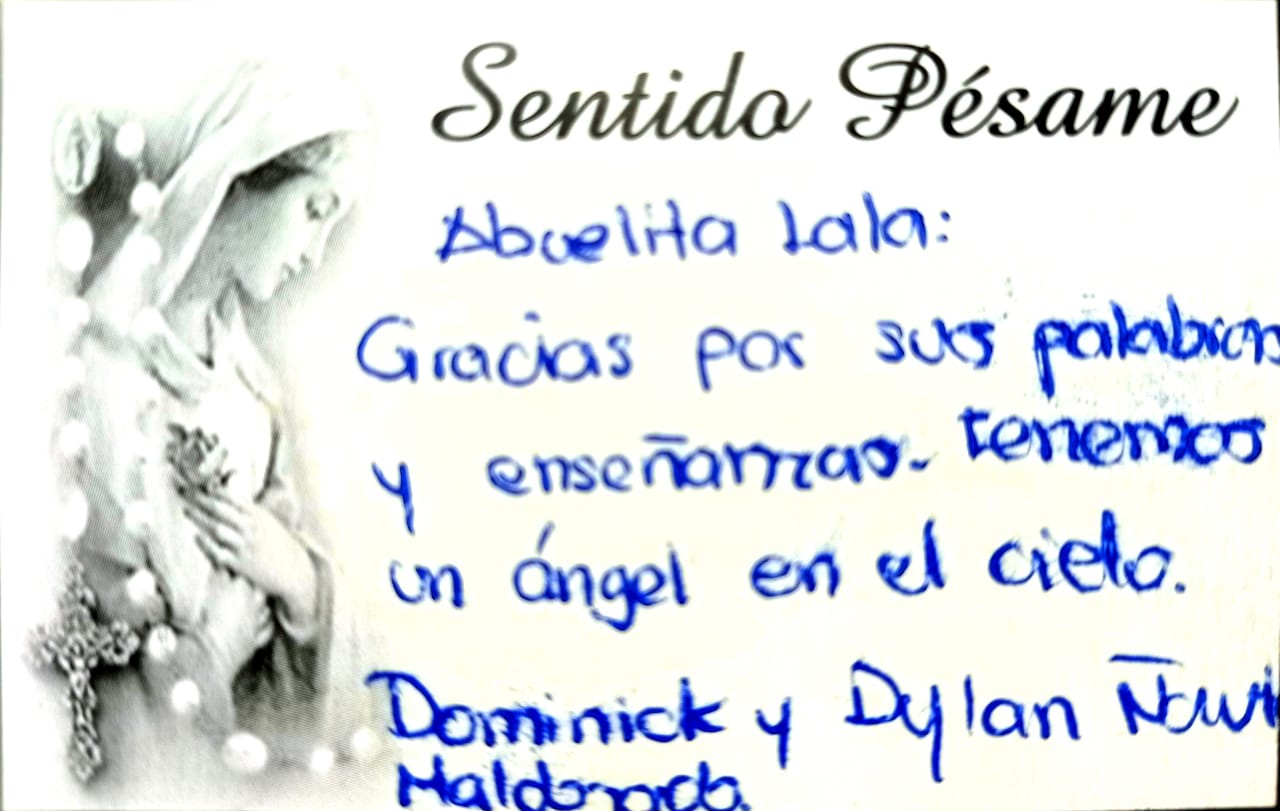 Sentido Pésame
Abuelita Lala:
Gracias por sus palabras
y enseñanzas. tenemos
un ángel en el cielo.
Dominick y Dylan
Maldonado.